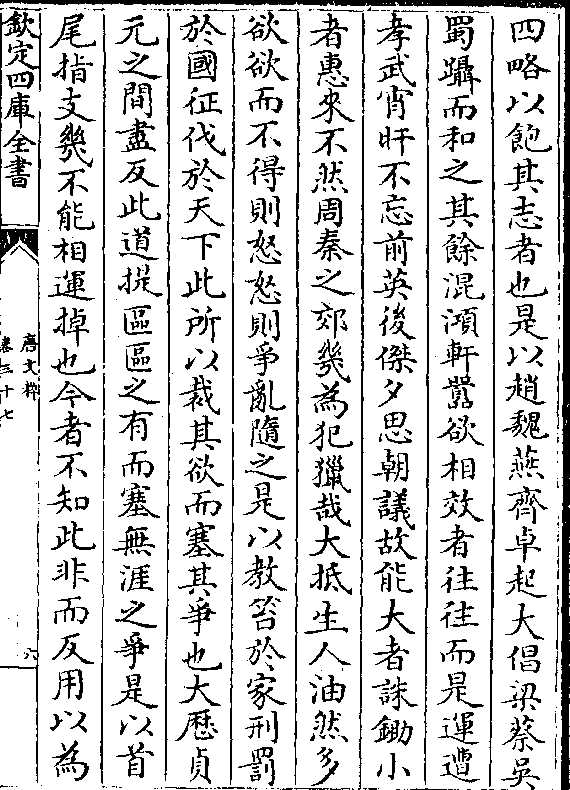 四略以飽其志者也是以趙魏燕齊卓起大倡梁蔡吳
蜀躡而和之其餘混澒軒囂欲相效者往往而是運遭
孝武宵旰不忘前英後傑夕思朝議故能大者誅鋤小
者惠來不然周秦之郊幾為犯獵哉大抵生人油然多
欲欲而不得則怒怒則爭亂隨之是以教笞於家刑罰
於國征伐於天下此所以裁其欲而塞其爭也大歴貞
元之間盡反此道提區區之有而塞無涯之爭是以首
尾指支幾不能相運掉也今者不知此非而反用以為
欽定四庫全書
唐文粹
卷三十七
六